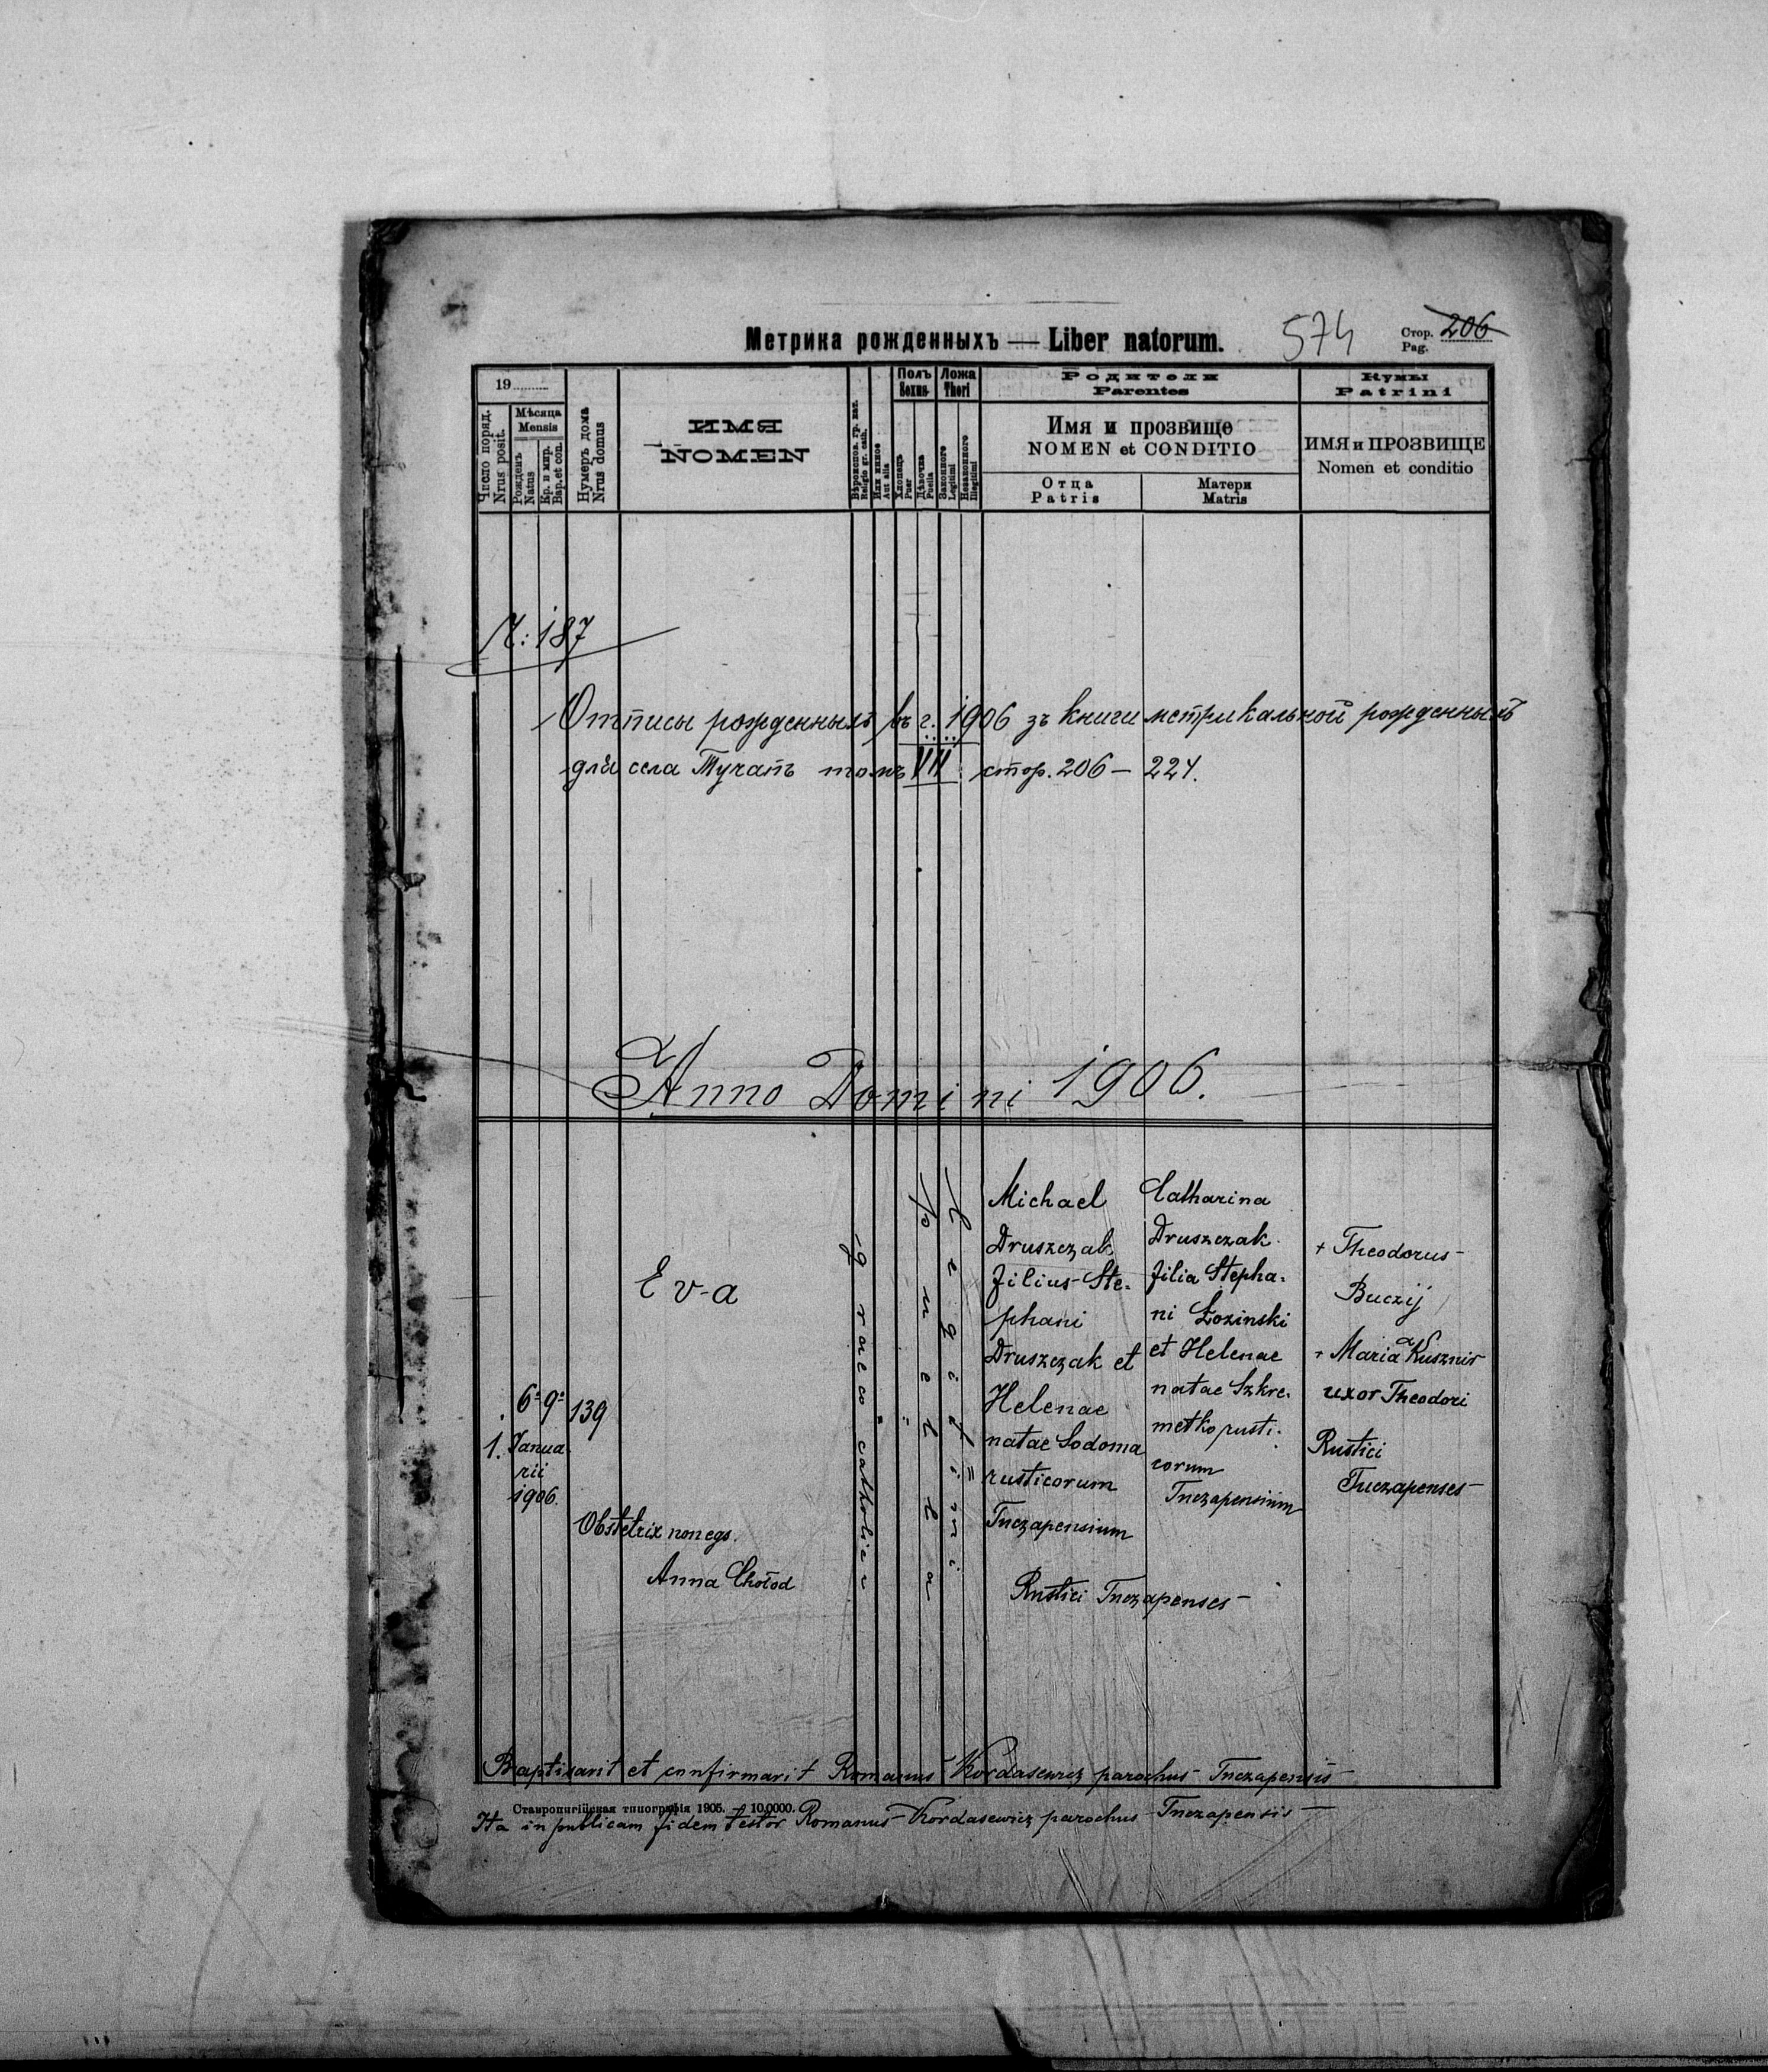 Метрика рожденныхъ — Liber natorum.
574
Стор. 206
Pag.
19
Число поряд.
Nrus posit.
Мѣсяца
Mensis
Рожденъ
Natus
Кр. и мир.
Bap. et con.
Нумеръ дома
Nrus domus
ИМЯ
NOMEN
Вѣроиспов. гр. кат.
Religio gr. cath.
Или инное
Aut alia
Полъ
Sexus
Хлопецъ
Puer
Дѣвочка
Puella
Ложа
Thori
Законного
Legitimi
Незаконного
Illegitimi
Родители
Parentes
Имя и прозвище
NOMEN et CONDITIO
Отца
Patris
Матери
Matris
Кумы
Patrini
ИМЯ и ПРОЗВИЩЕ
Nomen et conditio
N: 187
Отписы рожденныхъ въ г. 1906 зъ книги метрикальной рожденныхъ
для села Тучапъ томъ VII стор. 206 – 224.
Anno Domini 1906.
1.
6. 9.
Janua
rii
1906.
139
Eva
Obstetrix non egs.
Anna Chołod
graeco catholica
puella
Legitimi
Michael
Druszczak
filius Ste-
phani
Druszczak et
Helenae
natae Sodoma
rusticorum
Tuczapensium
Catharina
Druszczak
filia Stepha-
ni Łozinski
et Helenae
natae Szkre-
metko rusti-
corum
Tuczapensium
Rustici Tuczapenses
+ Theodorus
Buczij
+ Maria Kusznir
uxor Theodori
Rustici
Tuczapenses
Baptisavit et confirmavit Romanus Kordasewicz parochus Tuczapensis
Ставропигійская типографія 1905. — 10.0000.
Ita in publicam fidem testor Romanus Kordasewicz parochus Tuczapensis